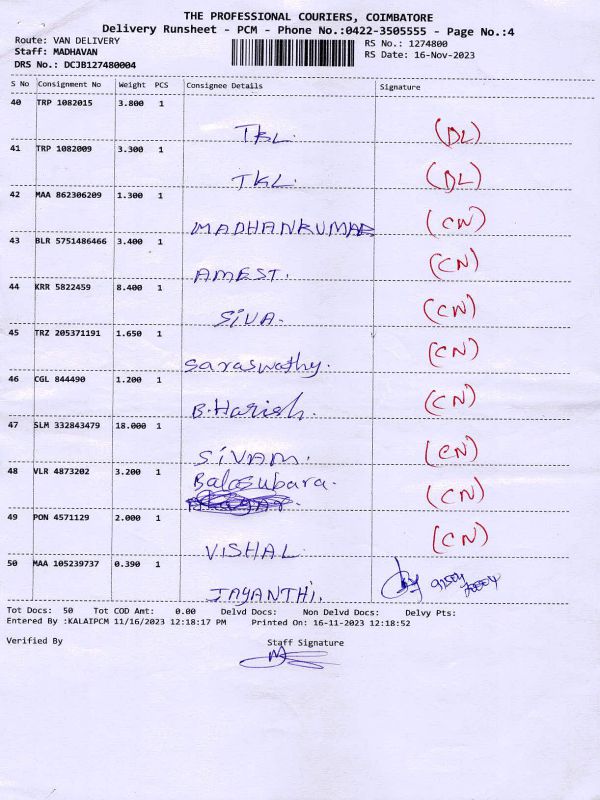 THE PROFESSIONAL COURIERS, COIMBATORE
Delivery Runsheet - PCM - Phone No.:0422-3505555 - Page No.:4
Route: VAN DELIVERY RS No.: 1274800
Staff: MADHAVAN RS Date: 16-Nov-2023
DRS No.: DCJB127480004
S No Consignment No Weight PCS Consignee Details Signature
40 TRP 1082015 3.800 1
TKL. (DL)
41 TRP 1082009 3.300 1
TKL. (DL)
42 MAA 862306209 1.300 1
MADHANKUMAR (CN)
43 BLR 5751486466 3.400 1
AMEST. (CN)
44 KRR 5822459 8.400 1
SIVA. (CN)
45 TRZ 205371191 1.650 1
Saraswathy. (CN)
46 CGL 844490 1.200 1
B.Harish. (CN)
47 SLM 332843479 18.000 1
SIVAM. (CN)
48 VLR 4873202 3.200 1
Balasubara. (CN)
49 PON 4571129 2.000 1
VISHAL (CN)
50 MAA 105239737 0.390 1
JAYANTHI.
Tot Docs: 50 Tot COD Amt: 0.00 Delvd Docs: Non Delvd Docs: Delvy Pts:
Entered By :KALAIPCM 11/16/2023 12:18:17 PM Printed On: 16-11-2023 12:18:52
Verified By Staff Signature